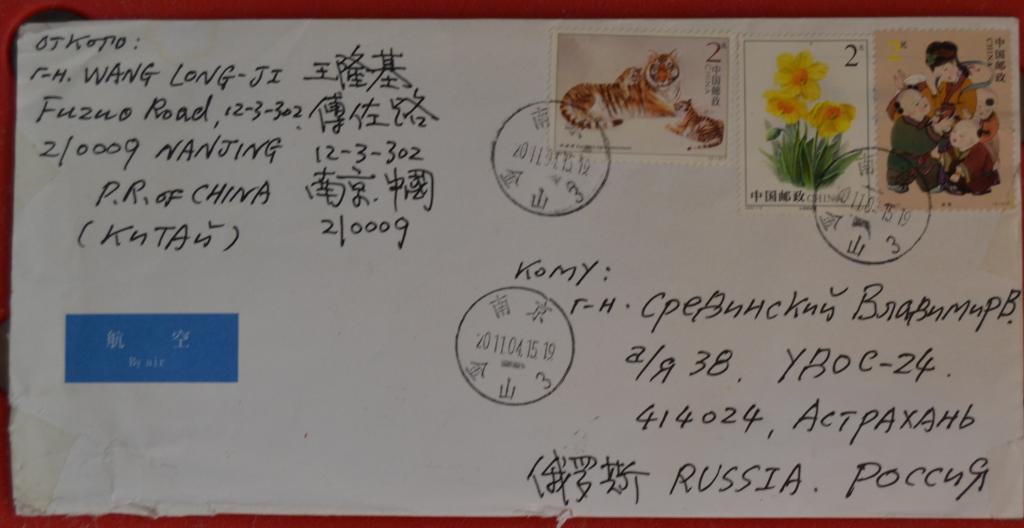 ОТ КОГО:
Г-Н. WANG LONG-JI 王隆基
Fuzuo Road, 12-3-302. 傅佐路
210009 NANJING 12-3-302
P.R. of CHINA 南京.中國
(КИТАЙ) 210009
2元
中国邮政
CHINA
2元
中国邮政 CHINA
2元
中国邮政
CHINA
南京
2011.04.15.19
金山 3
南京
2011.04.15.19
金山 3
КОМУ:
Г-Н. Срединский Владимир В.
航空
By air
南京
2011.04.15.19
金山 3
а/я 38. УДОС-24.
414024, АСТРАХАНЬ
俄罗斯 RUSSIA. РОССИЯ